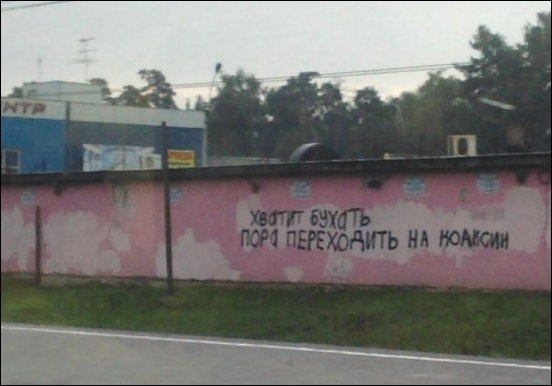 ЕНТР
АРЕНДА
ХВАТИТ БУХАТЬ
ПОРА ПЕРЕХОДИТЬ НА КОАКСИН